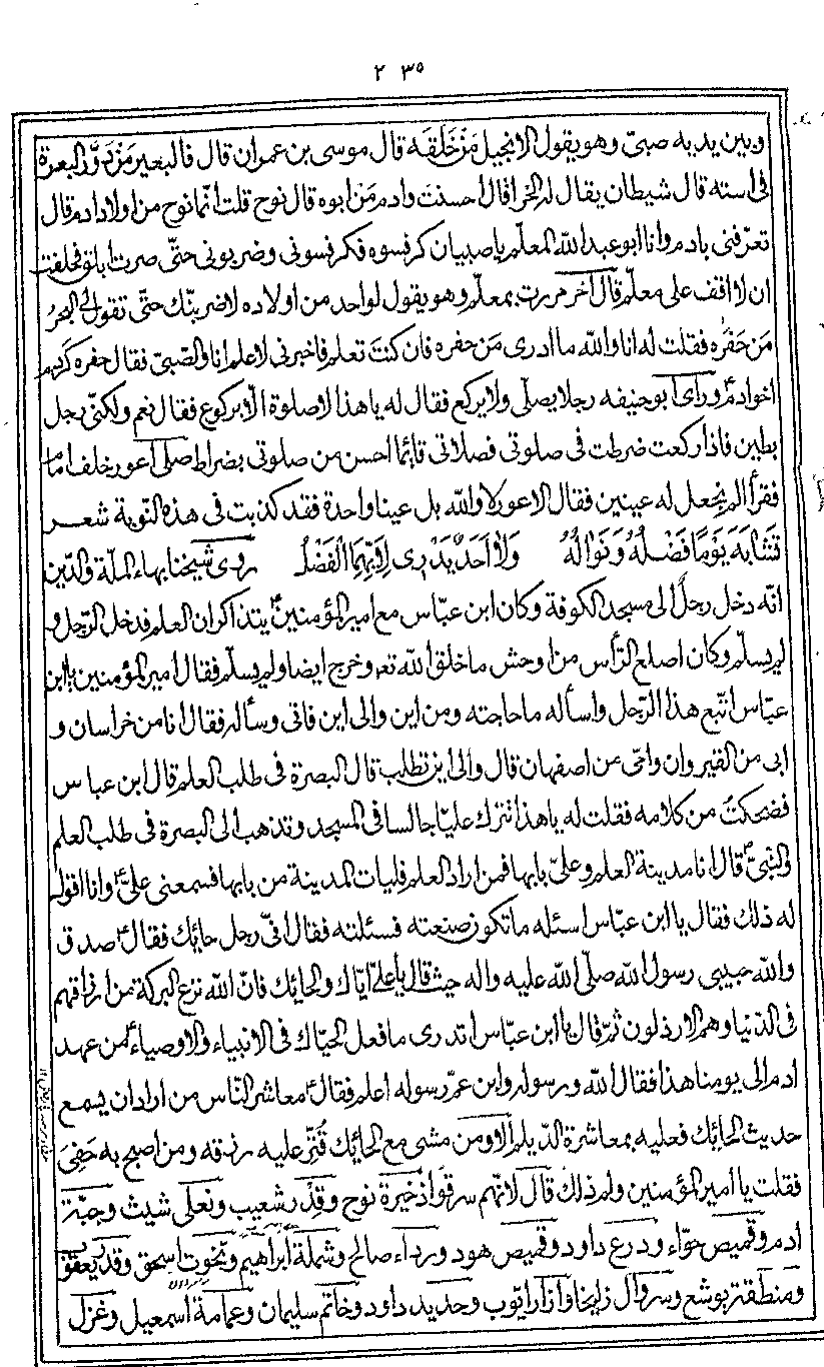 ٢٣٥
وبين يديه صبىّ وهو يقول الانجيل مَنْ خَلَقَه قال موسى بن عمران قال فالبعير مَنْ دَوَّر البعرة
فى استه قال شيطان يقال له الخرا قال احسنت وادم مَن ابوه قال نوح قلت انّما نوح من اولاد ادم قال
تعرّفنى بادم وانا ابو عبد الله المعلّم يا صبيان كرفسوه فكرفسونى وضربونى حتّى صرت ابلق فحلفت
ان لا اقف على معلّم قال آخر مررت بمعلّم وهو يقول لواحد من اولاده لاضربنّك حتّى تقول لى البحرُ
مَن حَفَرَه فقلت له انا والله ما ادرى مَن حفره فان كنتَ تعلم فاخبرنى لاعلم انا والصّبىّ فقال حفره كردم
اخو ادم ورأى ابو حنيفه رجلا يصلّى ولا يركع فقال له يا هذا لا صلوة الّا بركوع فقال نعم ولكنّى رجل
بطين فاذا ركعت ضرطت فى صلوتى فصلاتى قايما احسن من صلوتى بضراط صلّى اعور خلف امام
فقرأ الم نجعل له عينين فقال الاعور لا والله بل عينا واحدة فقد كذبت فى هذه النّوبة شعـر
تَشَابَهَ يَوْمًا فَضْلُهُ وَنَوَالُهُ وَلَا أَحَدٌ يَدْرِى لِاَيِّهِمَا الْفَضْلُ روى شيخنا بهاء الملّة والدّين
انّه دخل رجلٌ الى مسجد الكوفة وكان ابن عبّاس مع امير المؤمنينؑ يتذاكران العلم فدخل الرّجل و
لم يسلّم وكان اصلع الرّأس من اوحش ما خلق الله تعـ وخرج ايضا ولم يسلّم فقال امير المؤمنين يا ابن
عبّاس اتّبع هذا الرّجل واسأله ما حاجته ومن اين والى اين فاتى وسأله فقال انا من خراسان و
ابى من القيروان وامّى من اصفهان قال والى اين تطلب قال البصرة فى طلب العلم قال ابن عباس
فضحكتُ من كلامه فقلت له يا هذا تترك عليّا جالسا فى المسجد وتذهب الى البصرة فى طلب العلم
والنّبىّؐ قال انا مدينة العلم وعلىّ بابها فمن اراد العلم فليات المدينة من بابها فسمعنى علىّؑ وانا اقول
له ذلك فقال يا ابن عبّاس اسئله ما تكون صنعته فسئلته فقال انّى رجل حايك فقالؑ صدق
والله حبيبى رسول الله صلّى الله عليه واله حيث قال يا علىّ ايّاك والحايك فانّ الله نزع البركة من ارزاقهم
فى الدّنيا وهم الارذلون ثمّ قال يا ابن عبّاس اتدرى ما فعل الحيّاك فى الانبياء والاوصياء من عهد
ادم الى يومنا هذا فقال الله ورسوله وابن عمّ رسوله اعلم فقالؑ معاشر النّاس من اراد ان يسمع
حديث الحايك فعليه بمعاشرة الدّيلم الا ومن مشى مع الحايك قُتِّر عليه رزقه ومن اصبح به جَفِىَ
فقلت يا امير المؤمنين ولم ذلك قال لانّهم سرقوا ذخيرة نوح وقِدْر شعيب ونعلى شيث وجبّة
ادم وقميص حوّاء ودرع داود وقميص هود ورداء صالح وشملة ابراهيم وتخوت اسحق وقدر يعقوب
ومنطقة يوشع وسروال زليخا وازار ايّوب وحديد داود وخاتم سليمان وعمامة اسمعيل وغزل